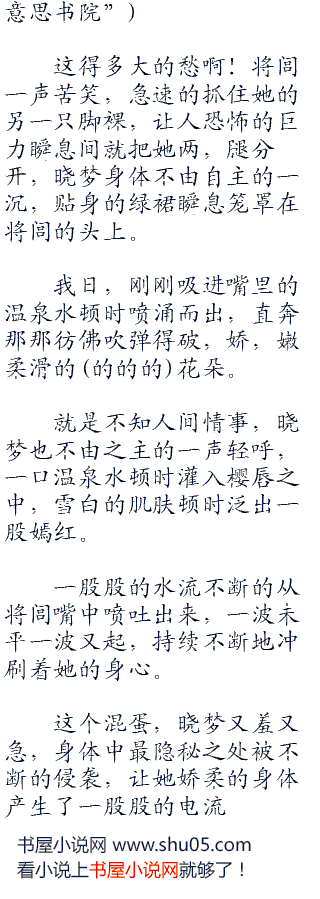 意思书院”)
这得多大的愁啊！将闾
一声苦笑，急速的抓住她的
另一只脚裸，让人恐怖的巨
力瞬息间就把她两，腿分
开，晓梦身体不由自主的一
沉，贴身的绿裙瞬息笼罩在
将闾的头上。
我日，刚刚吸进嘴里的
温泉水顿时喷涌而出，直奔
那那彷佛吹弹得破，娇，嫩
柔滑的(的的的)花朵。
就是不知人间情事，晓
梦也不由之主的一声轻呼，
一口温泉水顿时灌入樱唇之
中，雪白的肌肤顿时泛出一
股嫣红。
一股股的水流不断的从
将闾嘴中喷吐出来，一波未
平一波又起，持续不断地冲
刷着她的身心。
这个混蛋，晓梦又羞又
急，身体中最隐秘之处被不
断的侵袭，让她娇柔的身体
产生了一股股的电流
书屋小说网 www.shu05.com
看小说上书屋小说网就够了！